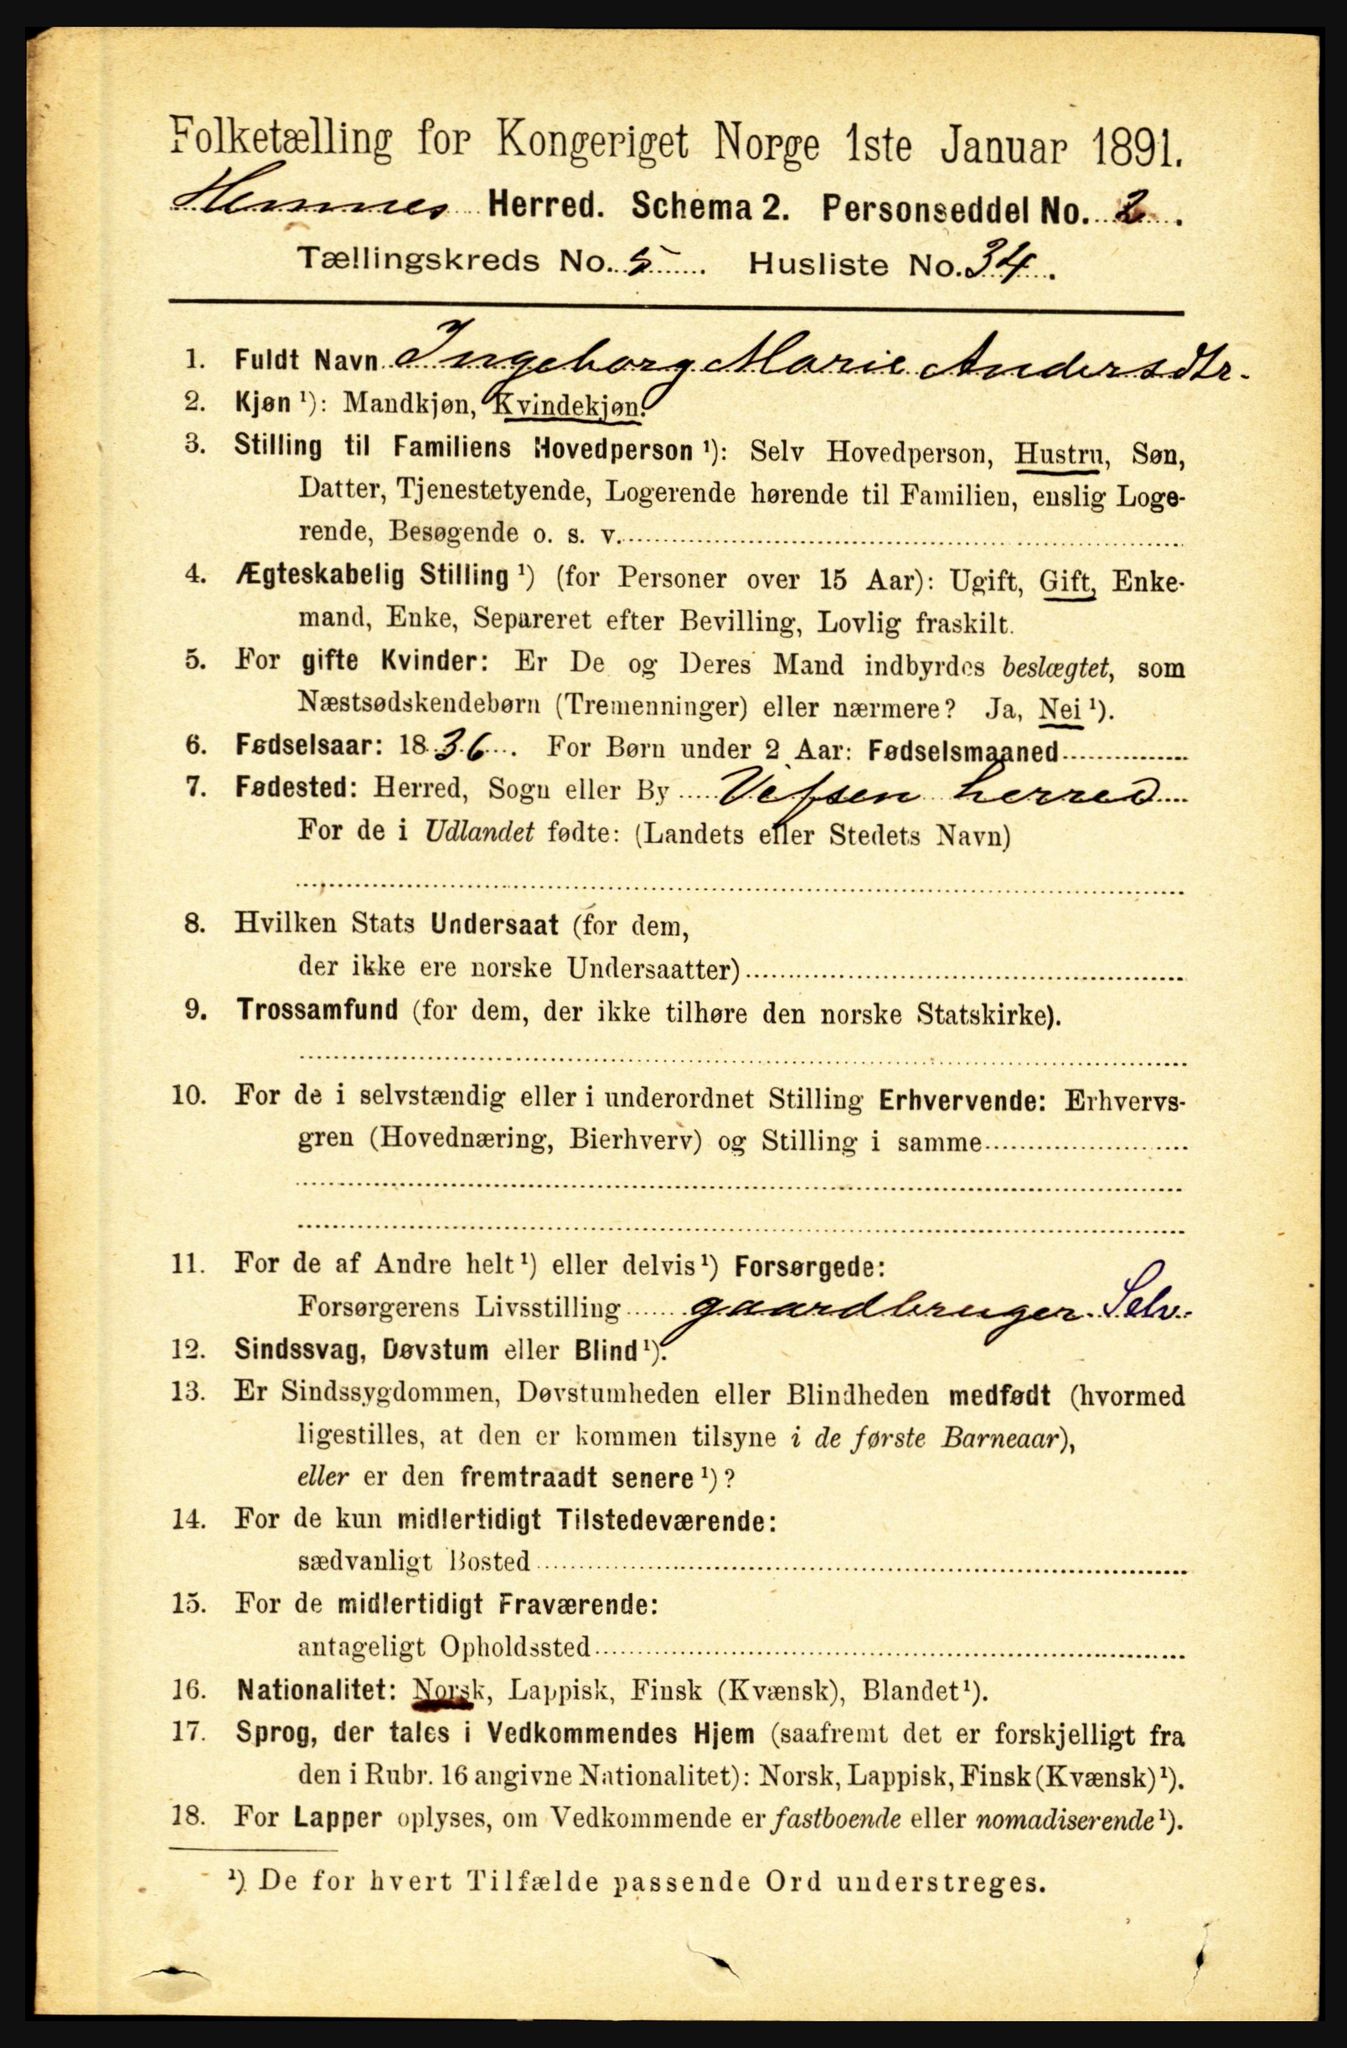 Folketælling for Kongeriget Norge 1ste Januar 1891.
Hemnes Herred. Schema 2. Personseddel No. 2.
Tællingskreds No. 5 Husliste No. 34.
1. Fuldt Navn Ingeborg Marie Andersdtr.
2. Kjøn ¹): Mandkjøn, Kvindekjøn.
3. Stilling til Familiens Hovedperson ¹): Selv Hovedperson, Hustru, Søn,
Datter, Tjenestetyende, Logerende hørende til Familien, enslig Loge-
rende, Besøgende o. s. v.
4. Ægteskabelig Stilling ¹) (for Personer over 15 Aar): Ugift, Gift, Enke-
mand, Enke, Separeret efter Bevilling, Lovlig fraskilt.
5. For gifte Kvinder: Er De og Deres Mand indbyrdes beslægtet, som
Næstsødskendebørn (Tremenninger) eller nærmere? Ja, Nei ¹).
6. Fødselsaar: 1836. For Børn under 2 Aar: Fødselsmaaned
7. Fødested: Herred, Sogn eller By Vefsen herred
For de i Udlandet fødte: (Landets eller Stedets Navn)
8. Hvilken Stats Undersaat (for dem,
der ikke ere norske Undersaatter)
9. Trossamfund (for dem, der ikke tilhøre den norske Statskirke).
10. For de i selvstændig eller i underordnet Stilling Erhvervende: Erhvervs-
gren (Hovednæring, Bierhverv) og Stilling i samme
11. For de af Andre helt ¹) eller delvis ¹) Forsørgede:
Forsørgerens Livsstilling gaardbruger. Selv.
12. Sindssvag, Døvstum eller Blind ¹).
13. Er Sindssygdommen, Døvstumheden eller Blindheden medfødt (hvormed
ligestilles, at den er kommen tilsyne i de første Barneaar),
eller er den fremtraadt senere ¹)?
14. For de kun midlertidigt Tilstedeværende:
sædvanligt Bosted
15. For de midlertidigt Fraværende:
antageligt Opholdssted
16. Nationalitet: Norsk, Lappisk, Finsk (Kvænsk), Blandet ¹).
17. Sprog, der tales i Vedkommendes Hjem (saafremt det er forskjelligt fra
den i Rubr. 16 angivne Nationalitet): Norsk, Lappisk, Finsk (Kvænsk) ¹).
18. For Lapper oplyses, om Vedkommende er fastboende eller nomadiserende ¹).
¹) De for hvert Tilfælde passende Ord understreges.